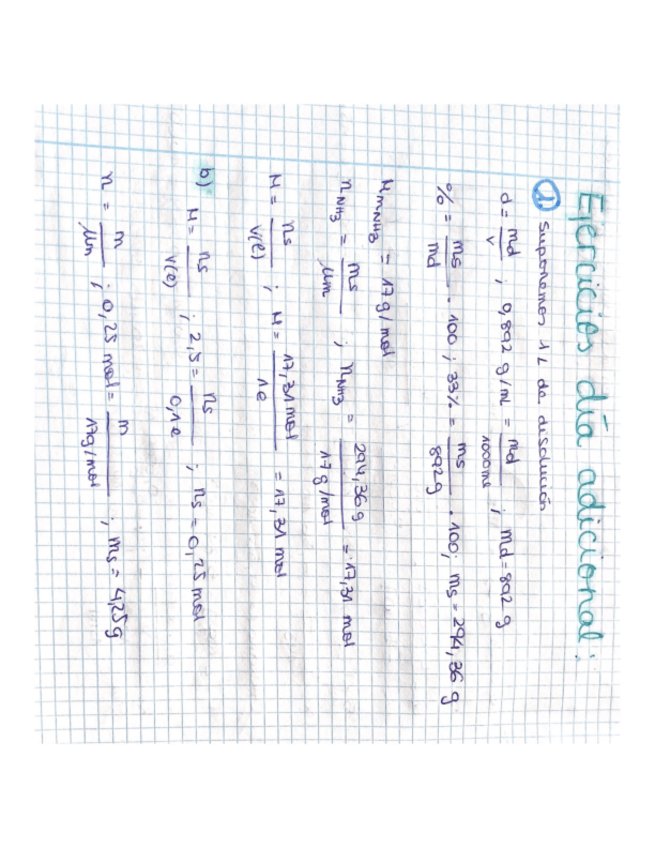 Ejercicios día adicional:
① Suponemos 1L de disolución
d = md / v ; 0,892 g/ml = md / 1000 ml ; md = 892 g
% = ms / md · 100 ; 33% = ms / 892g · 100; ms = 294,36 g
MmNH3 = 17 g/mol
nNH3 = ms / Mm ; nNH3 = 294,36 g / 17 g/mol = 17,31 mol
M = ns / V(l) ; M = 17,31 mol / 1l = 17,31 mol
b) M = ns / V(l) ; 2,5 = ns / 0,1l ; ns = 0,25 mol
n = m / Mm ; 0,25 mol = m / 17g/mol ; ms = 4,25g